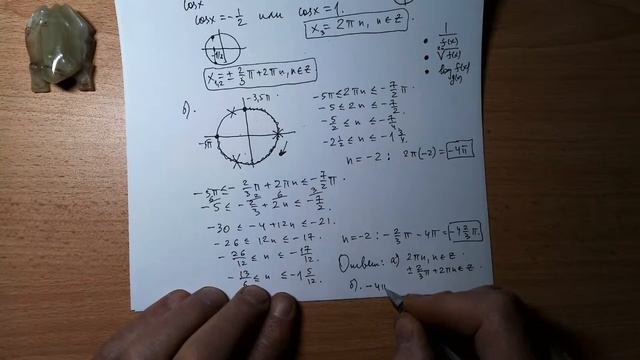 cosx
cosx = -1/2 или cosx = 1.
x₃ = 2πn, n∈z
x₁,₂ = ± 2/3 π + 2πn, n∈z
1/f(x)
√f(x)
log f(x) g(x)
б).
-3,5π
-5π
-5π ≤ 2πn ≤ -7/2 π
-5 ≤ 2n ≤ -7/2
-5/2 ≤ n ≤ -7/4
-2 1/2 ≤ n ≤ -1 3/4
n = -2 : 2π(-2) = -4π
-5π ≤ -2/3 π + 2πn ≤ -7/2 π.
-5 ≤ -2/3 + 2n ≤ -7/2.
-30 ≤ -4 + 12n ≤ -21.
-26 ≤ 12n ≤ -17.
-26/12 ≤ n ≤ -17/12
-13/6 ≤ n ≤ -1 5/12.
n = -2 : -2/3 π - 4π = -4 2/3 π.
Ответ: а) 2πn, n∈z
± 2/3 π + 2πn∈z.
б). -4π